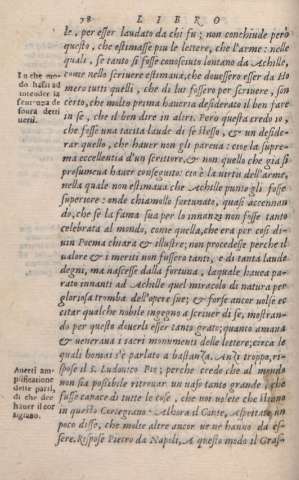 78 LIBRO
le, per esser laudato da chi fu; non conchiude però
questo, che estimasse piu le lettere, che l'arme: nelle
quali, se tanto si fosse conosciuto lontano da Achille,
come nello scriuere estimaua, che douessero esser da Ho
mero tutti quelli, che di lui fossero per scriuere, son
certo, che molto prima haueria desiderato il ben fare
in se, che il ben dire in altri. Però questa credo io,
che fosse una tacita laude di se stesso, & un deside-
rar quello, che hauer non gli pareua: cioe la supre-
ma eccellentia d'un scrittore, & non quello che gia si
prosumeua hauer conseguito: cio è la uirtu dell'arme,
nella quale non estimaua che Achille punto gli fosse
superiore: onde chiamollo fortunato, quasi accennan
do, che se la fama sua per lo innanzi non fosse tanto
celebrata al mondo, come quella, che era per cosi di-
uin Poema chiara & illustre; non procedesse perche il
ualore & i meriti non fussero tanti, e di tanta laude
degni, ma nascesse dalla fortuna, laquale hauea pa-
rato innanti ad Achille quel miracolo di natura per
gloriosa tromba dell'opere sue; & forse ancor uolse ec
citar qualche nobile ingegno a scriuer di se, mostran-
do per questo douerli esser tanto grato; quanto amaua
& ueneraua i sacri monumenti delle lettere; circa le
quali homai s'è parlato a bastanza. Anzi troppo, ri-
spose il S. Ludouico Pio; perche credo che al mondo
non sia possibile ritrouar un uaso tanto grande, che
fusse capace di tutte le cose, che uoi uolete che stiano
in questo Cortegiano. Alhora il Conte, Aspettate un
poco disse, che molte altre ancor ue ne hanno da es-
sere. Rispose Pietro da Napoli, A questo modo il Gras-
In che mo-
do hassi ad
intender la
sentenza de
soura detti
uersi.
Auerti am-
plificatione
delle parti,
di che dee
hauer il cor
tigiano.